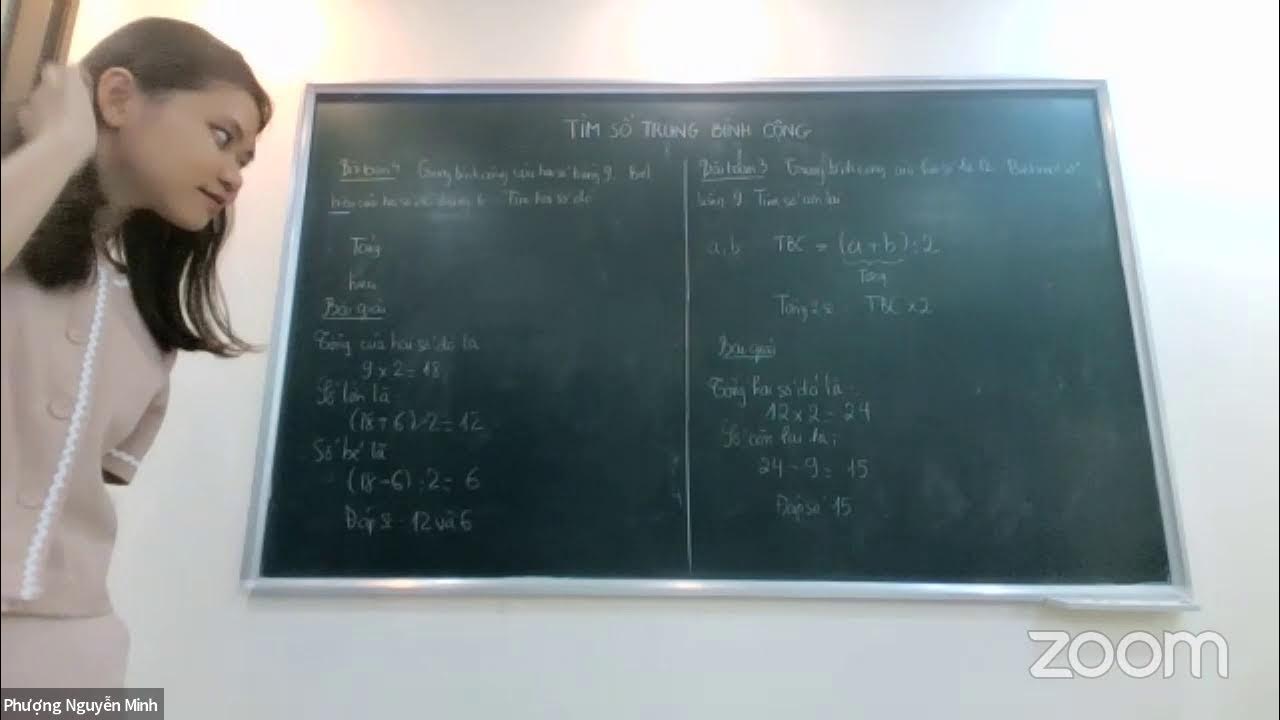 TÌM SỐ TRUNG BÌNH CỘNG
Bài toán 4 Trung bình cộng của hai số bằng 9. Biết
hiệu của hai số đó bằng 6. Tìm hai số đó
Tổng
hiệu
Bài giải
Tổng của hai số đó là
9 x 2 = 18
Số lớn là
(18 + 6) : 2 = 12
Số bé là
(18 - 6) : 2 = 6
Đáp số 12 và 6
Bài toán 3 Trung bình cộng của hai số là 12. Biết một số
bằng 9. Tìm số còn lại
a, b TBC = (a + b) : 2
Tổng
Tổng 2 số TBC x 2
Bài giải
Tổng hai số đó là
12 x 2 = 24
Số còn lại là:
24 - 9 = 15
Đáp số 15
zoom
Phượng Nguyễn Minh